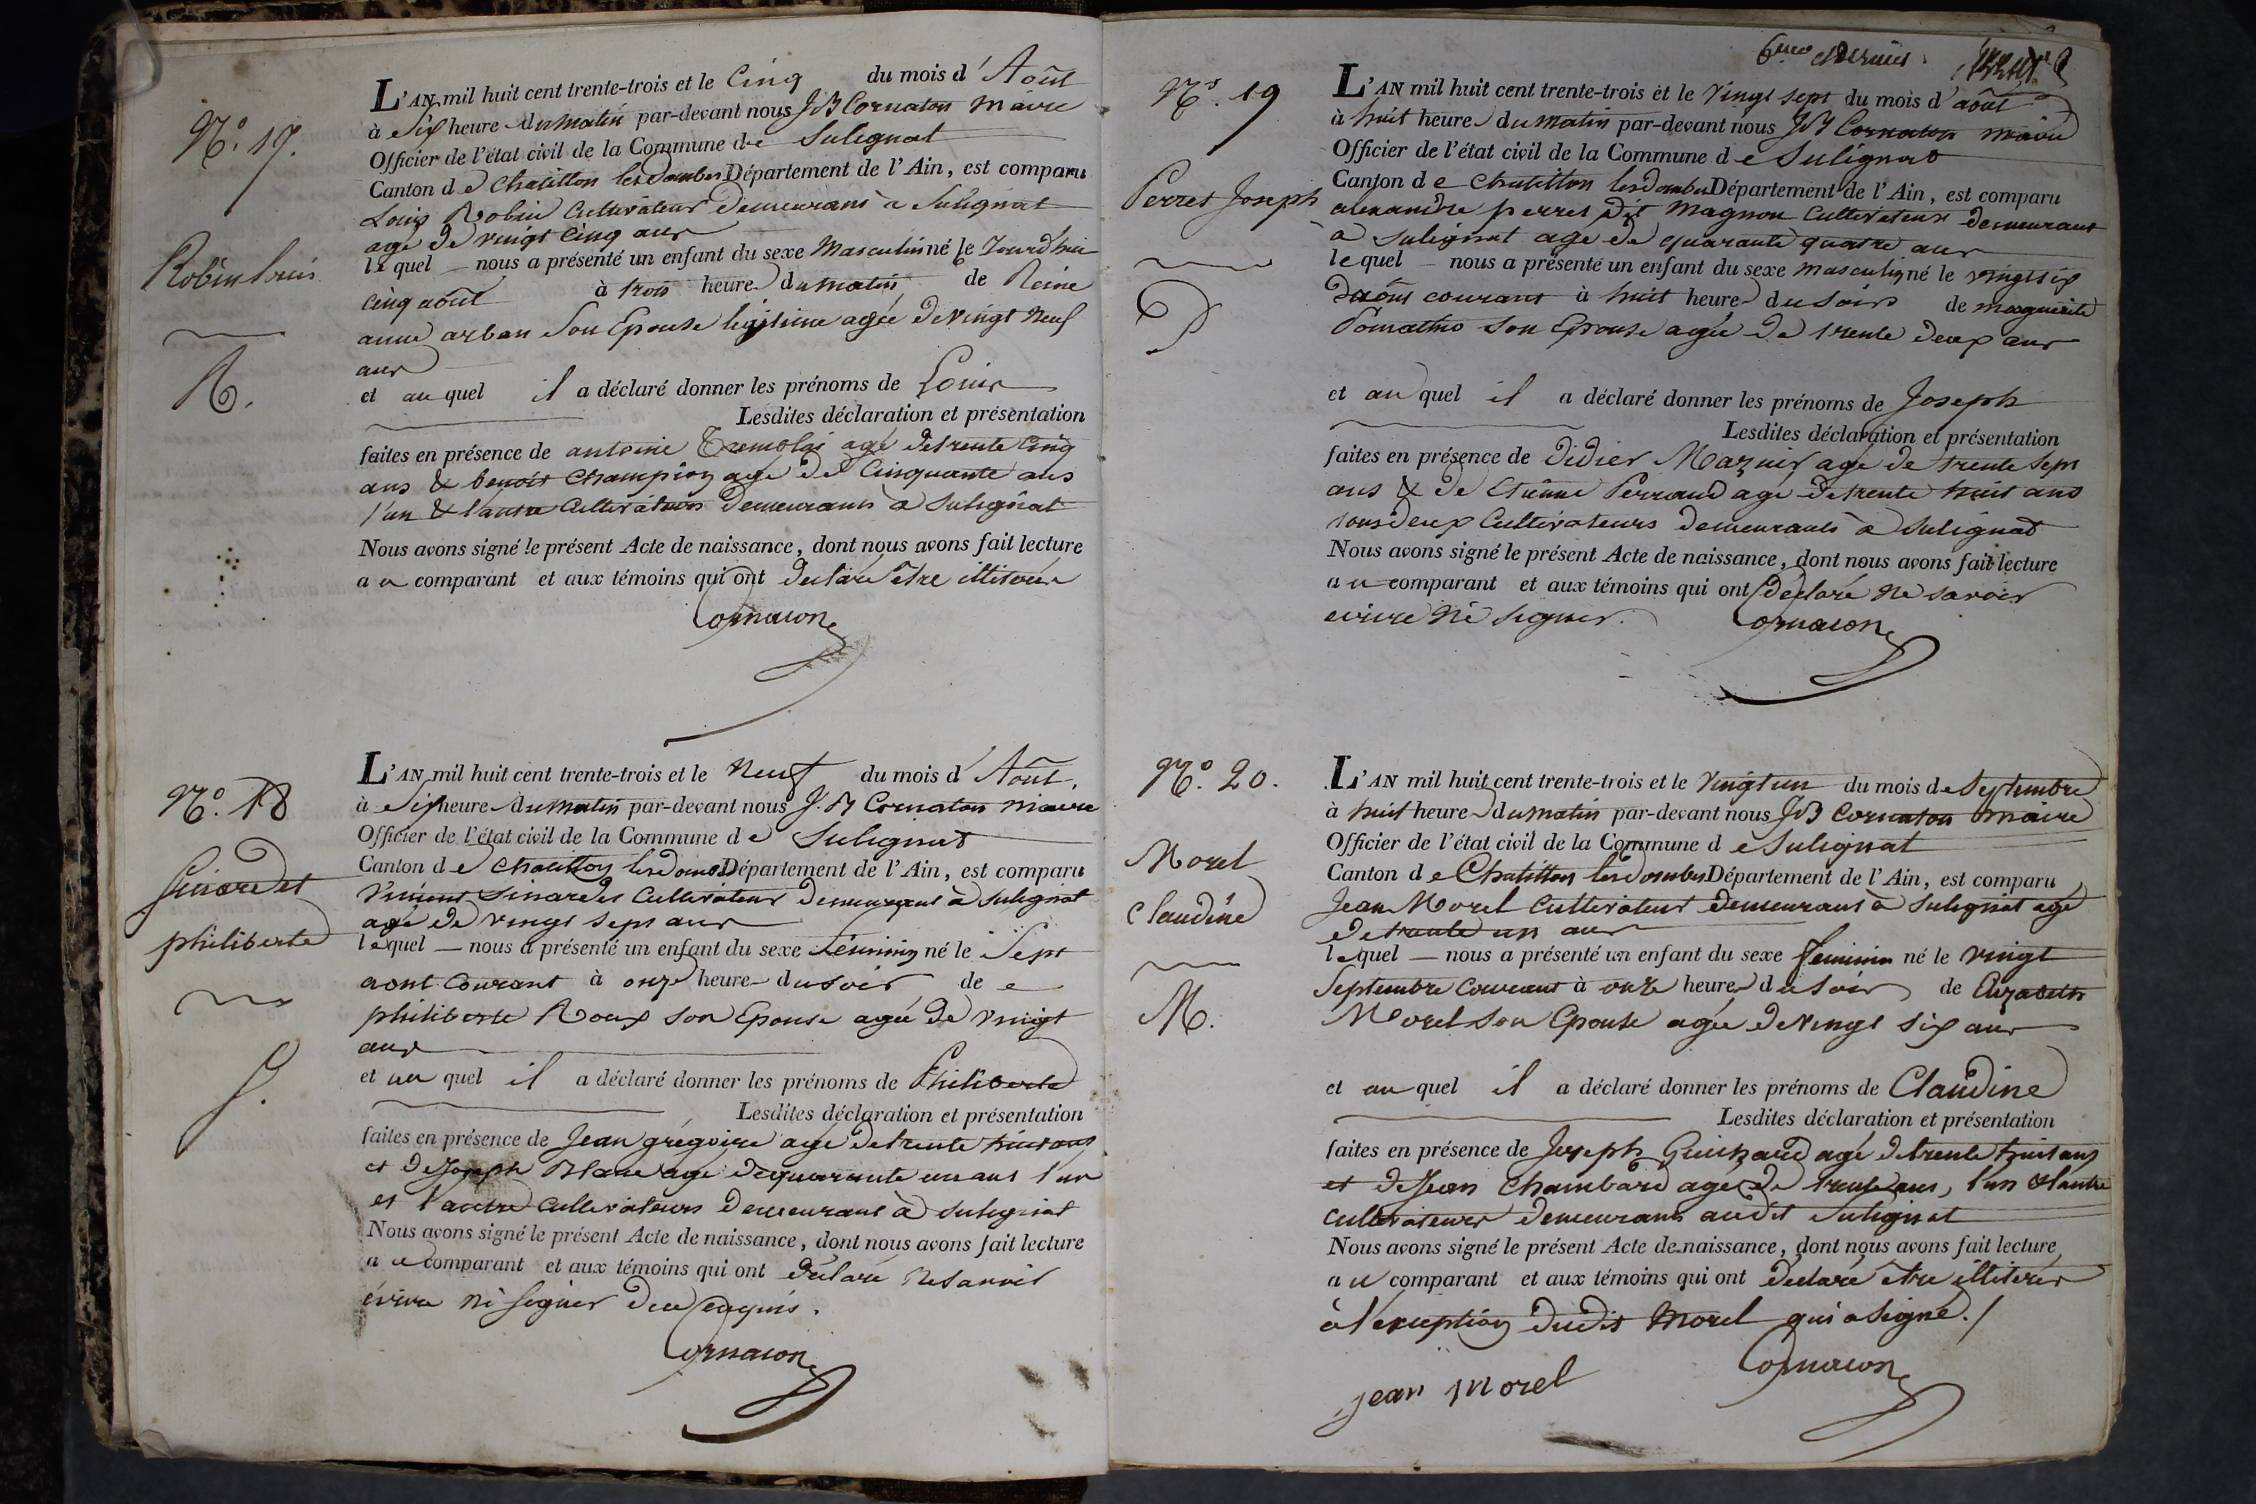 N.º 17.
Robin Louis
R.
L'AN mil huit cent trente-trois et le Cinq du mois d'Août
à Six heure du matin par-devant nous J B Cornaton Maire
Officier de l'état civil de la Commune de Sulignat
Canton de Chatillon les dombes Département de l'Ain, est comparu
Louis Robin Cultivateur demeurant à Sulignat
agé de vingt cinq ans
lequel nous a présenté un enfant du sexe Masculin né le Jourd'hui
cinq août à trois heure du matin de Reine
anne arban son Epouse légitime agée de vingt neuf
ans
et au quel il a déclaré donner les prénoms de Louis
Lesdites déclaration et présentation
faites en présence de antoine Tremblai agé de trente cinq
ans & benoit Champion agé de Cinquante ans
l'un & l'autre Cultivateurs demeurants à Sulignat
Nous avons signé le présent Acte de naissance, dont nous avons fait lecture
au comparant et aux témoins qui ont déclaré être illiterés
Cornaton
N.º 18
Sinardet
philiberte
S.
L'AN mil huit cent trente-trois et le Neuf du mois d'Août
à Six heure du matin par-devant nous J. B Cornaton Maire
Officier de l'état civil de la Commune de Sulignat
Canton de Chatillon les dombes Département de l'Ain, est comparu
Vincent Sinardet Cultivateur demeurant à Sulignat
agé de vingt sept ans
lequel nous a présenté un enfant du sexe féminin né le Sept
aout Courant à onze heure du soir de
philiberte Roux son Epouse agée de vingt
ans
et au quel il a déclaré donner les prénoms de Philiberte
Lesdites déclaration et présentation
faites en présence de Jean grégoire agé de trente huit ans
et de Joseph Blanc agé de quarante un ans l'un
et l'autre Cultivateurs demeurant à Sulignat
Nous avons signé le présent Acte de naissance, dont nous avons fait lecture
au comparant et aux témoins qui ont déclaré Ne savoir
écrire ni signer de ce requis.
Cornaton
6.me et dernier.
N.º 19
Perret Joseph
P
L'AN mil huit cent trente-trois et le Vingt sept du mois d'août
à huit heure du matin par-devant nous J B Cornaton maire
Officier de l'état civil de la Commune de Sulignat
Canton de Chatillon les dombes Département de l'Ain, est comparu
alexandre perret dit Magnon Cultivateur demeurant
à Sulignat agé de quarante quatre ans
lequel nous a présenté un enfant du sexe masculin né le vingt six
d'août courant à huit heure du soir de marguerite
son Epouse agée de trente deux ans
et au quel il a déclaré donner les prénoms de Joseph
Lesdites déclaration et présentation
faites en présence de didier Mazuir agé de trente sept
ans & de Etienne Perraud agé de trente huit ans
tous deux Cultivateurs demeurants à Sulignat
Nous avons signé le présent Acte de naissance, dont nous avons fait lecture
au comparant et aux témoins qui ont déclaré ne savoir
ecrire Ni signer.
Cornaton
N.º 20.
Morel
Claudine
M.
L'AN mil huit cent trente-trois et le Vingt un du mois de Septembre
à huit heure du matin par-devant nous J B Cornaton maire
Officier de l'état civil de la Commune de Sulignat
Canton de Chatillon les dombes Département de l'Ain, est comparu
Jean Morel Cultivateur demeurant à Sulignat agé
de trente un ans
lequel nous a présenté un enfant du sexe féminin né le vingt
Septembre courant à onze heure du soir de Elizabeth
Morel son Epouse agée de vingt six ans
et au quel il a déclaré donner les prénoms de Claudine
Lesdites déclaration et présentation
faites en présence de Joseph Guichard agé de trente huit ans
et de Jean Chambard agé de trente ans, l'un & l'autre
cultivateurs demeurants audit Sulignat
Nous avons signé le présent Acte de naissance, dont nous avons fait lecture
au comparant et aux témoins qui ont déclaré être illiterés
à l'exception dudit Morel qui a signé./
Cornaton
jean morel